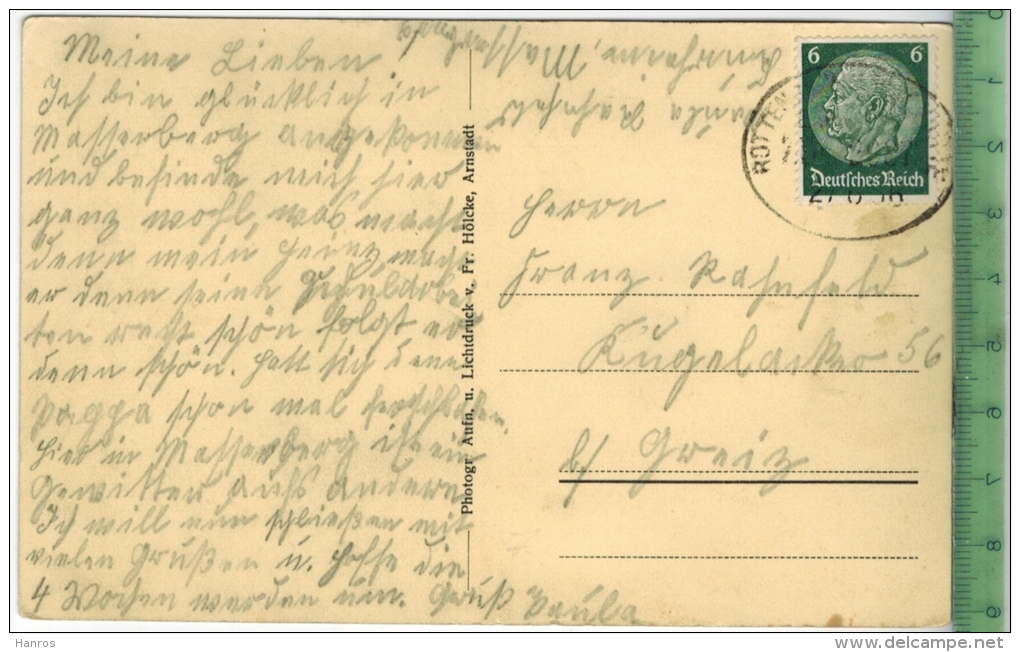 Meine Lieben!
Ich bin glücklich in
Masserberg angekommen
und befinde mich hier
ganz wohl, was macht
denn mein Heinz macht
er denn seine
ten recht schön folgt er
denn schön. Hatt sich denn
Pappa schon mal
hier in Masserberg ist ein
Gewitter aufs andere
Ich will nun schließen mit
vielen Grüßen u. hoffe die
4 Wochen werden um. Gruß Paula
Paula Rahnfeld
Masserberg
Photogr Aufn. u. Lichtdruck v. Fr. Hölcke, Arnstadt
6 6
Deutsches Reich
Herrn
Franz Rahnfeld
Kugelacker 56
b/ Greiz
Hanros
www.delcampe.net